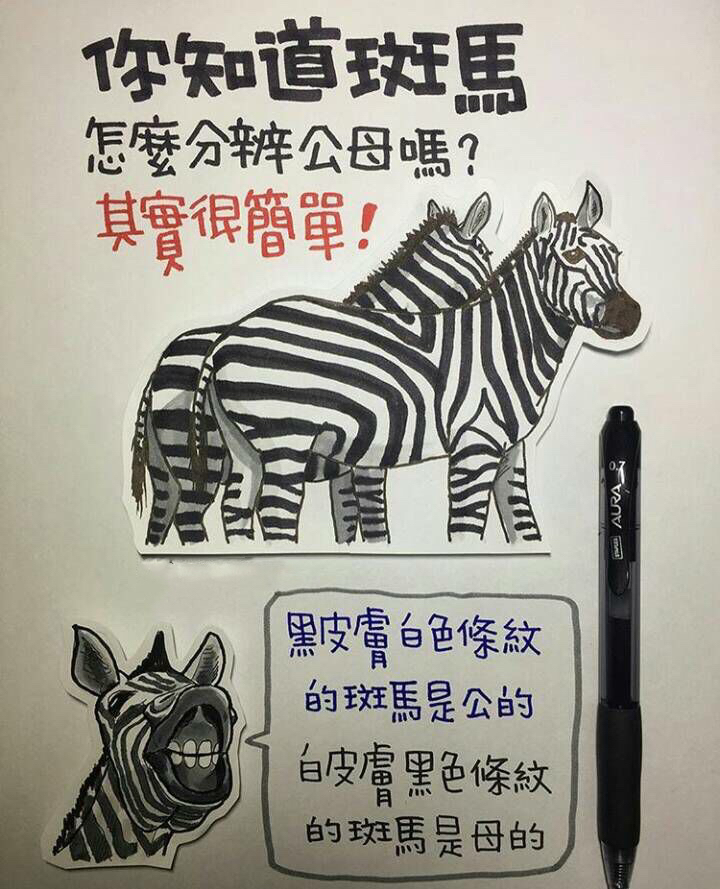 你知道斑馬
怎麼分辨公母嗎?
其實很簡單!
黑皮膚白色條紋
的斑馬是公的
白皮膚黑色條紋
的斑馬是母的